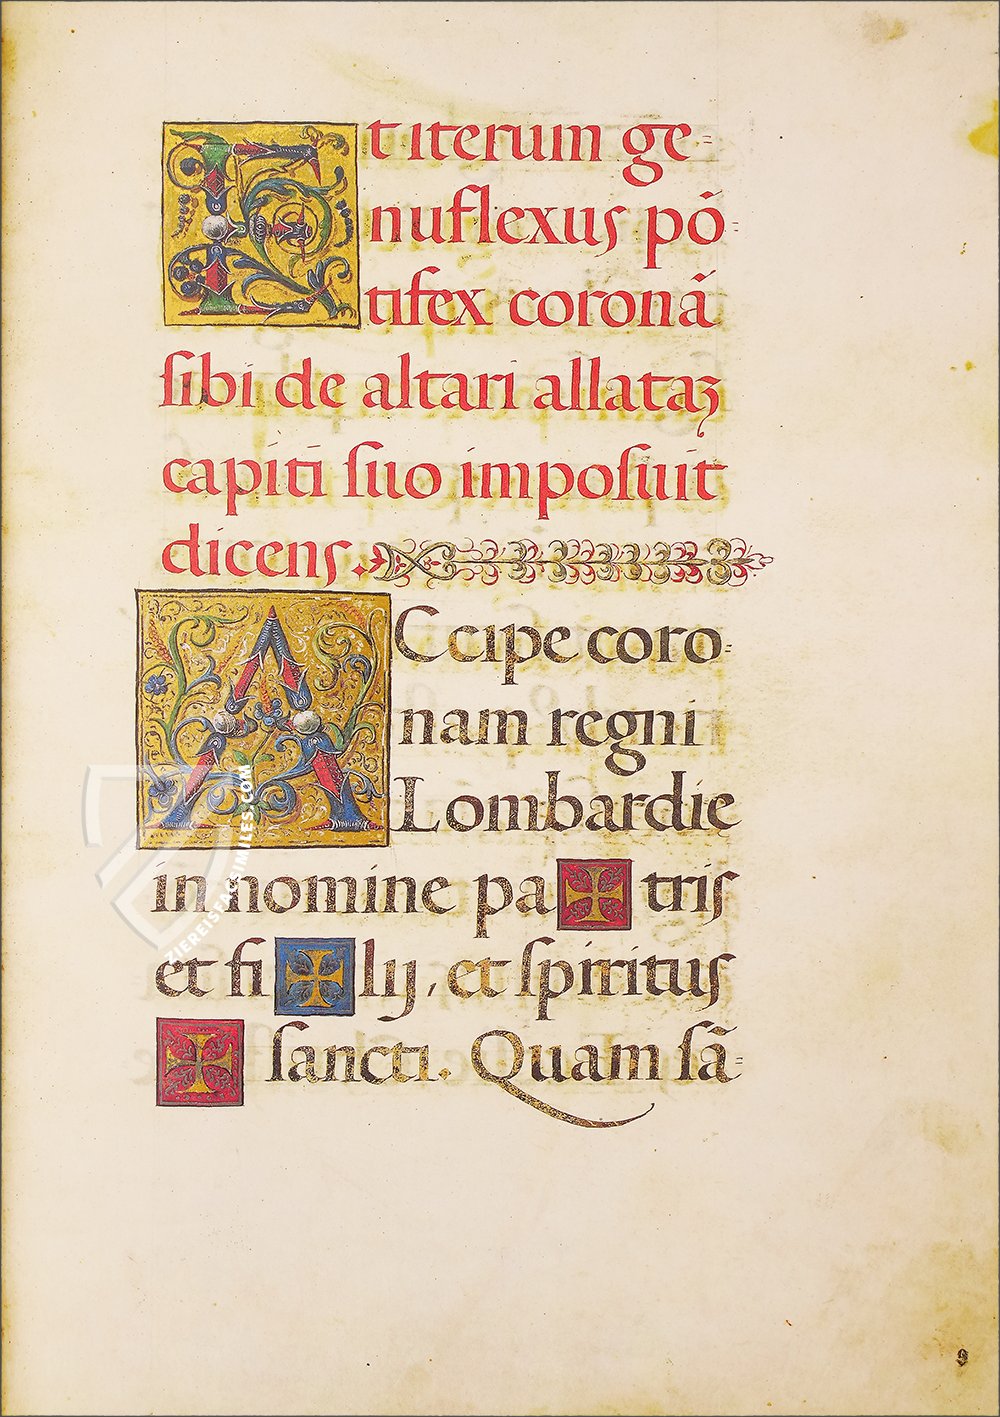 Et iterum ge-
nuflexus põ-
tifex coronã
sibi de altari allataʒ
capiti suo imposuit
dicens.
ACcipe coro-
nam regni
Lombardie
in nomine pa ✠ tris
et fi ✠ lij, et spiritus
✠ sancti. Quam sã-
ZIEREISFACSIMILES.COM
9